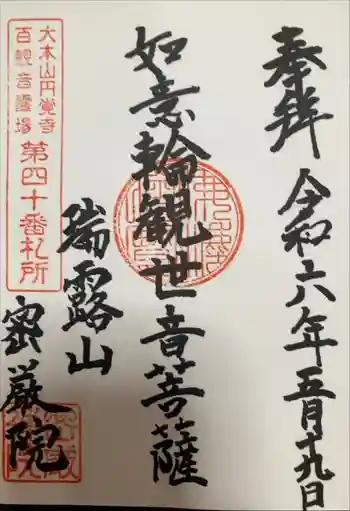 奉拝 令和六年五月十九日
如意輪観世音菩薩
瑞露山
密厳院
大本山円覚寺
百観音霊場
第四十番札所